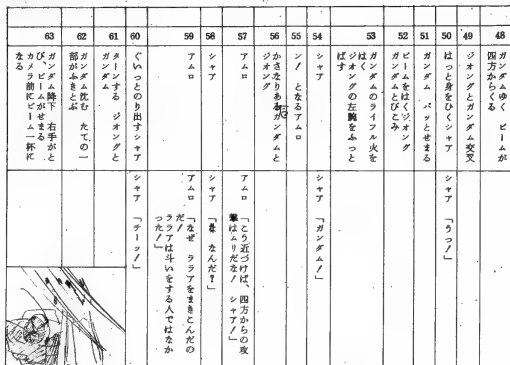 48
ガンダムゆく ビームが
四方からくる
49
ジオングとガンダム交叉
50
はっと身をひくシャア
シャア 「うっ!」
51
ガンダム パッとせまる
52
ビームをはくジオング
ガンダムとびこみ
53
ガンダムのライフル火を
はく
ジオングの左腕をふっと
ばす
54
シャア
シャア 「ガンダム!」
55
ン! となるアムロ
56
かさなりあるガンダムと
ジオング
57
アムロ
アムロ 「こう近づけば、四方からの攻
撃はムリだな! シャア!」
58
シャア
シャア 「な なんだ?」
59
アムロ
アムロ 「なぜ ララアをまきこんだの
だ!
ララアは斗いをする人ではなか
った!」
60
ぐいっとのり出すシャア
シャア 「チーッ!」
61
ターンする ジオングと
ガンダム
62
ガンダム沈む たての一
部がふきとぶ
63
ガンダム降下 右手がと
び、ビームがせまる
カメラ前にビーム一杯に
なる